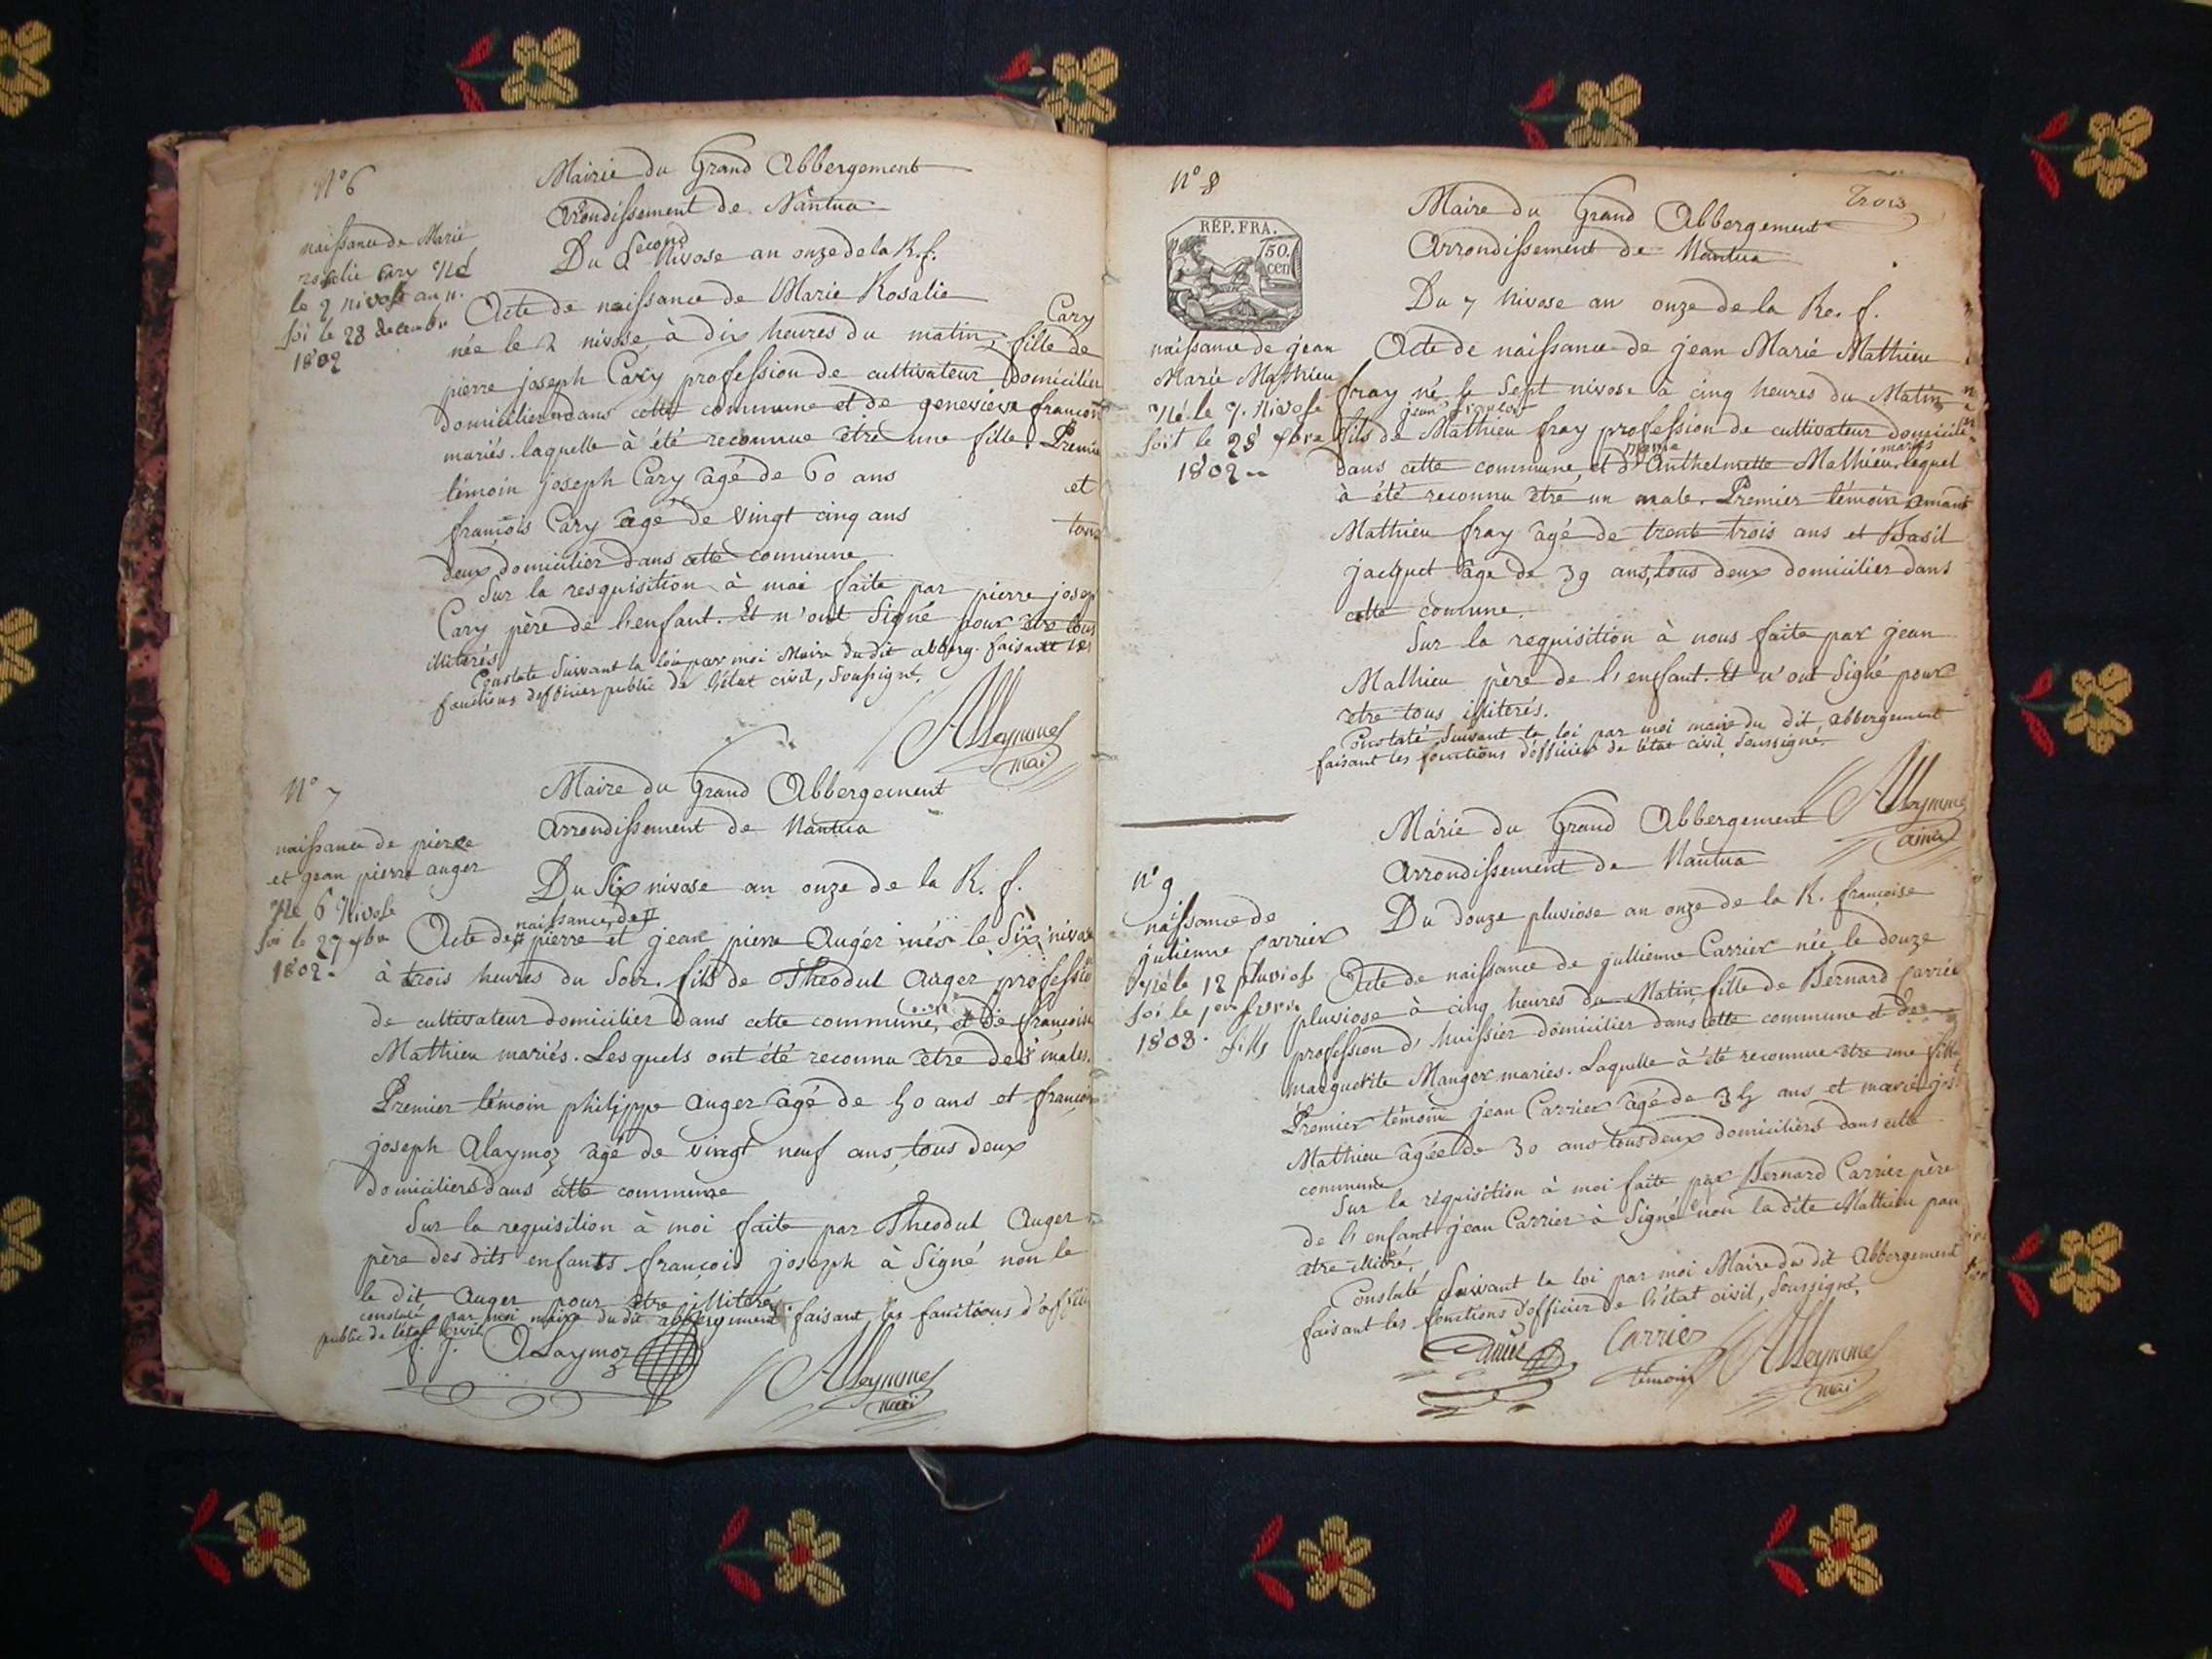 N° 6
Mairie du Grand Abbergement
Arrondissement de Nantua
naissance de Marie
rosalie Cary Né
le 2 nivose an 11.
soi le 23 decembr
1802
Du Second Nivose an onze de la R. f.
Acte de naissance de Marie Rosalie Cary
née le 2 nivose à dix heures du matin, fille de
pierre joseph Cary profession de cultivateur domicilier
domicilier dans cette commune et de genevieve françon
mariés. laquelle à été reconnue etre une fille. Premier
témoin joseph Cary agé de 60 ans et
françois Cary agé de vingt cinq ans tous
deux domicilier dans cette commune
Sur la resquisition à moi faite par pierre josep
Cary père de l'enfant. Et n'ont Signé pour etre tous
illiterés
Constaté Suivant la loi par moi Maire du dit abberg. faisant les
fonctions d'officier public de l'état civil, soussigné.
Alleymme
mai
N° 7
Maire du Grand Abbergement
Arrondissement de Nantua
naissance de pierre
et jean pierre auger
Né 6 Nivose
soi le 27 xbre
1802.
Du Six nivose an onze de la R. f.
naissance de
Acte de pierre et jean pierre Auger nés le Six nivose
à trois heures du Soir. fils de Theodul Auger profession
de cultivateur domicilier dans cette commune, et de françoise
Mathieu mariés. Lesquels ont été reconnu etre des males.
Premier témoin philippe Auger agé de 50 ans et françois
joseph Alaymoz agé de vingt neuf ans, tous deux
domiciliers dans cette commune
Sur la requisition à moi faite par Theodul Auger
père des dits enfants françois joseph à Signé non le
le dit Auger pour etre illiteré
constaté par moi maire du dit abbergement faisant les fonctions d'officier
public de l'état civil
f. J. Alaymoz
Alleymme
mai
N° 8
Trois
RÉP. FRA.
50.
cen
Maire du Grand Abbergement
Arrondissement de Nantua
Du 7 Nivose an onze de la Re. f.
naissance de jean
Marie Mathieu
Né le 7. Nivose
soit le 28 xbre
1802..
Acte de naissance de jean Marie Mathieu
fray né le Sept nivose à cinq heures du Matin
fils de Mathieu fray profession de cultivateur domicilié
mariés
dans cette commune et d'Anthelmette Mathieu. lequel
à été reconnu etre un male. Premier témoin Amand
Mathieu fray agé de trente trois ans et Basil
jacquet age de 39 ans, tous deux domicilier dans
cette comune.
Sur la requisition à nous faite par jean
Mathieu père de l'enfant. Et n'ont Signé pour
etre tous illiterés.
Constaté Suivant la loi par moi maire du dit, abbergement
faisant les fonctions d'officier de l'état civil soussigné.
Alleymme
Mairie du Grand Abbergement
Arrondissement de Nantua
N° 9
naissance de
julienne Carrier
Née le 12 pluviose
soi le 1er fevrie
1803. fille
Du douze pluviose an onze de la R. françoise
Acte de naissance de jullienne Carrier née le douze
pluviose à cinq heures du Matin, fille de Bernard Carrie
profession d'huissier domicilier dans cette commune et de
marguerite Manger mariés. Laquelle à été reconnue etre une fille
Premier témoin jean Carrier agé de 34 ans et marie jos
Mathieu agée de 30 ans tous deux domiciliers dans cette
commune
Sur la réquisition à moi faite par Bernard Carrier père
de l'enfant jean Carrier à Signé non la dite Mathieu pou
etre illitré.
Constaté Suivant la loi par moi Maire du dit Abbergement
faisant les fonctions d'officier de l'état civil, Soussigné.
Carrier
témoin
Alleymme
mai